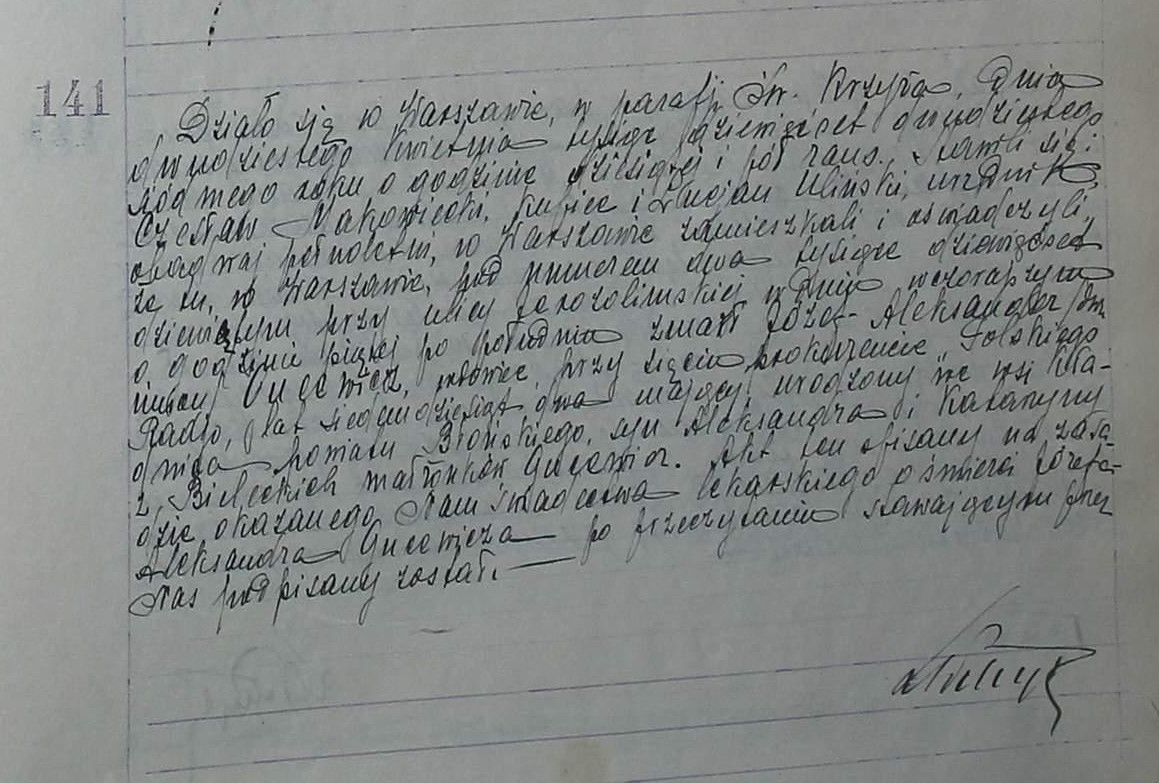 141
Działo się w Warszawie, w parafji Św. Krzyża, Dnia
dwudziestego Kwietnia tysiąc dziewięćset dwudziestego
siódmego roku o godzinie dziesiątej i pół rano. Stawili się:
Czesław Makowiecki, kupiec i Lucjan Uliński, urzędnik,
obydwaj pełnoletni, w Warszawie zamieszkali i oświadczyli,
że tu, w Warszawie, pod numerem dwa tysiące dziewięćset
dziewiątym przy ulicy Jerozolimskiej w dniu wczorajszym
o godzinie piątej po południu zmarł Józef-Aleksander
Gucewicz, wdowiec, przy zięciu prokurencie „Polskiego
Radjo, lat siedemdziesiąt dwa mający, urodzony we wsi
powiatu Błońskiego, syn Aleksandra i Katarzyny
z Bieleckich małżonków Gucewicz. Akt ten spisany na zasa-
dzie okazanego Nam świadectwa lekarskiego o śmierci Józefa-
Aleksandra Gucewicza — po przeczytaniu stawającym przez
Nas podpisany został. —